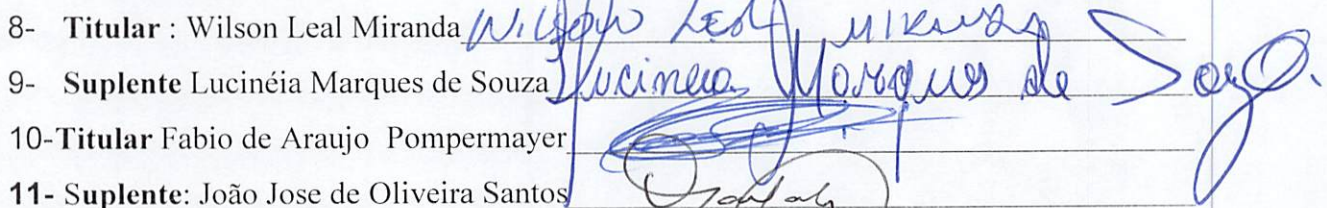 8- Titular : Wilson Leal Miranda Wilson Leal Miranda
9- Suplente Lucinéia Marques de Souza Lucineia Marques de Souza.
10-Titular Fabio de Araujo Pompermayer
11- Suplente: João Jose de Oliveira Santos